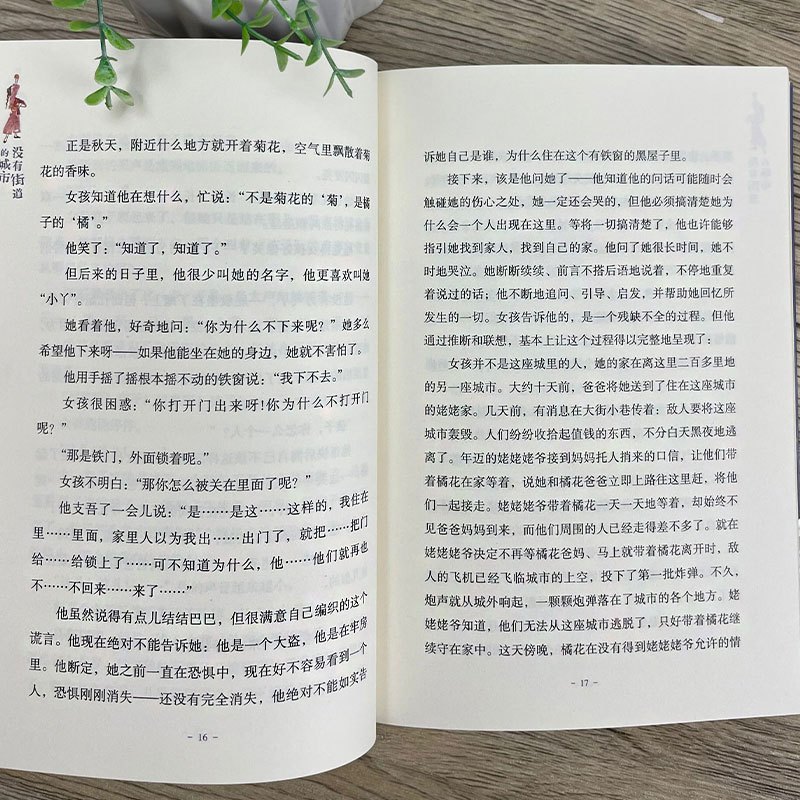 没有街道
的城市
正是秋天，附近什么地方就开着菊花，空气里飘散着菊
花的香味。
女孩知道他在想什么，忙说：“不是菊花的‘菊’，是橘
子的‘橘’。”
他笑了：“知道了，知道了。”
但后来的日子里，他很少叫她的名字，他更喜欢叫她
“小丫”。
她看着他，好奇地问：“你为什么不下来呢？”她多么
希望他下来呀——如果他能坐在她的身边，她就不害怕了。
他用手摇了摇根本摇不动的铁窗说：“我下不去。”
女孩很困惑：“你打开门出来呀！你为什么不打开门
呢？”
“那是铁门，外面锁着呢。”
女孩不明白：“那你怎么被关在里面了呢？”
他支吾了一会儿说：“是……是这……这样的，我住在
里……里面，家里人以为我出……出门了，就把……把门
给……给锁上了……可不知道为什么，他……他们就再也
不……不回来……来了……”
他虽然说得有点儿结结巴巴，但很满意自己编织的这个
谎言。他现在绝对不能告诉她：他是一个大盗，他是在牢房
里。他断定，她之前一直在恐惧中，现在好不容易看到一个
人，恐惧刚刚消失——还没有完全消失，他绝对不能如实告
- 16 -
诉她自己是谁，为什么住在这个有铁窗的黑屋子里。
接下来，该是他问她了——他知道他的问话可能随时会
触碰她的伤心之处，她一定还会哭的，但他必须搞清楚她为
什么会一个人出现在这里。等将一切搞清楚了，他也许能够
指引她找到家人，找到自己的家。他问了她很长时间，她不
时地哭泣。她断断续续、前言不搭后语地说着，不停地重复
着说过的话；他不断地追问、引导、启发，并帮助她回忆所
发生的一切。女孩告诉他的，是一个残缺不全的过程。但他
通过推断和联想，基本上让这个过程得以完整地呈现了：
女孩并不是这座城里的人，她的家在离这里二百多里地
的另一座城市。大约十天前，爸爸将她送到了住在这座城市
的姥姥家。几天前，有消息在大街小巷传着：敌人要将这座
城市轰毁。人们纷纷收拾起值钱的东西，不分白天黑夜地逃
离了。年迈的姥姥姥爷接到妈妈托人捎来的口信，让他们带
着橘花在家等着，说她和橘花爸爸立即上路往这里赶，将他
们一起接走。姥姥姥爷带着橘花一天一天地等着，却始终不
见爸爸妈妈到来，而他们周围的人已经走得差不多了。就在
姥姥姥爷决定不再等橘花爸妈、马上就带着橘花离开时，敌
人的飞机已经飞临城市的上空，投下了第一批炸弹。不久，
炮声就从城外响起，一颗颗炮弹落在了城市的各个地方。姥
姥姥爷知道，他们无法从这座城市逃脱了，只好带着橘花继
续守在家中。这天傍晚，橘花在没有得到姥姥姥爷允许的情
- 17 -